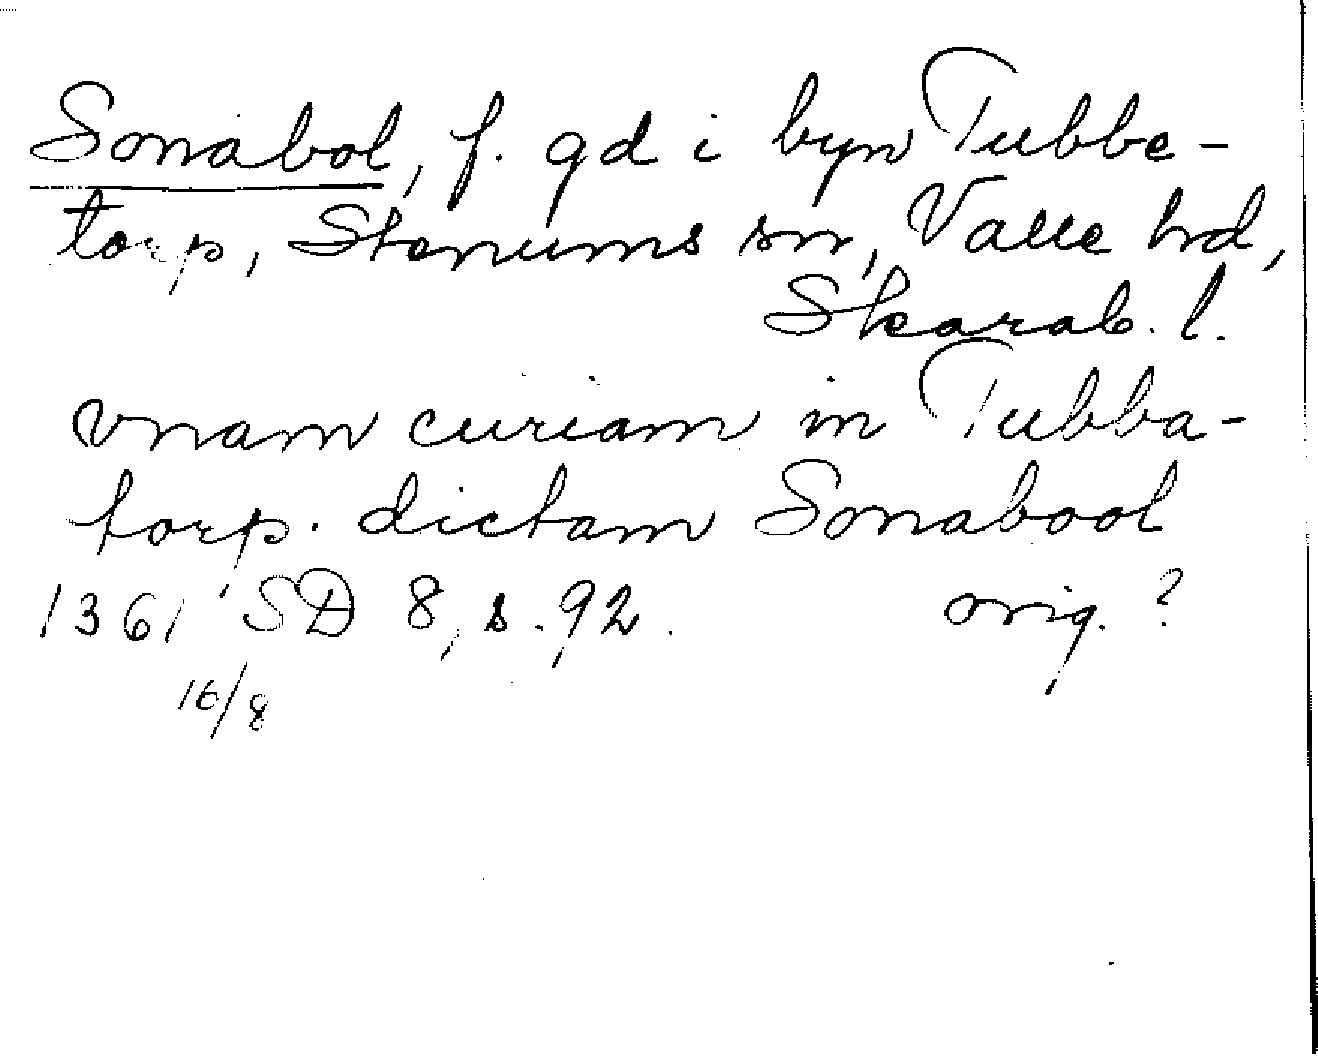 Sonabol, f. gd i byn Tubbe-
torp, Stenums sn, Valle hd,
Skarab. l.
vnam curiam in Tubba-
torp. dictam Sonabool
1361 SD 8, s. 92. orig. ?
16/8